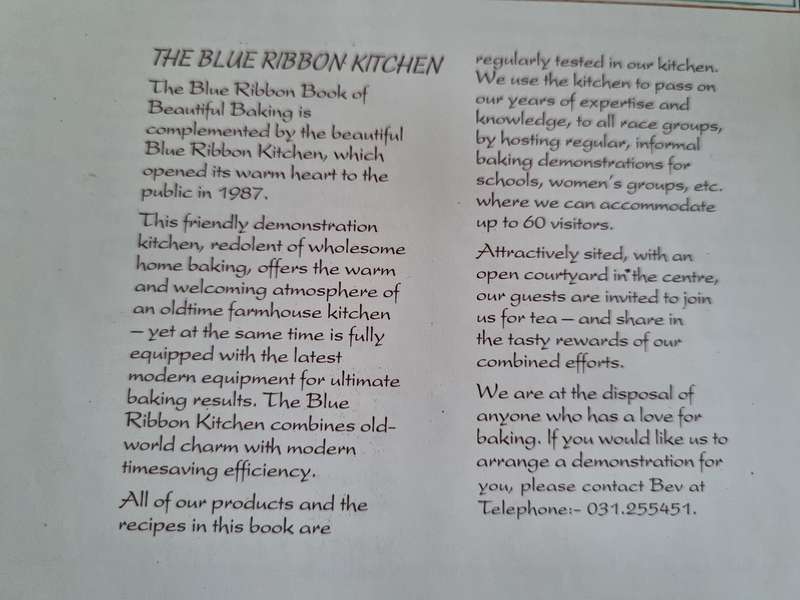 THE BLUE RIBBON KITCHEN
The Blue Ribbon Book of
Beautiful Baking is
complemented by the beautiful
Blue Ribbon Kitchen, which
opened its warm heart to the
public in 1987.
This friendly demonstration
kitchen, redolent of wholesome
home baking, offers the warm
and welcoming atmosphere of
an oldtime farmhouse kitchen
– yet at the same time is fully
equipped with the latest
modern equipment for ultimate
baking results. The Blue
Ribbon Kitchen combines old-
world charm with modern
timesaving efficiency.
All of our products and the
recipes in this book are
regularly tested in our kitchen.
We use the kitchen to pass on
our years of expertise and
knowledge, to all race groups,
by hosting regular, informal
baking demonstrations for
schools, women's groups, etc.
where we can accommodate
up to 60 visitors.
Attractively sited, with an
open courtyard in the centre,
our guests are invited to join
us for tea – and share in
the tasty rewards of our
combined efforts.
We are at the disposal of
anyone who has a love for
baking. If you would like us to
arrange a demonstration for
you, please contact Bev at
Telephone:- 031.255451.